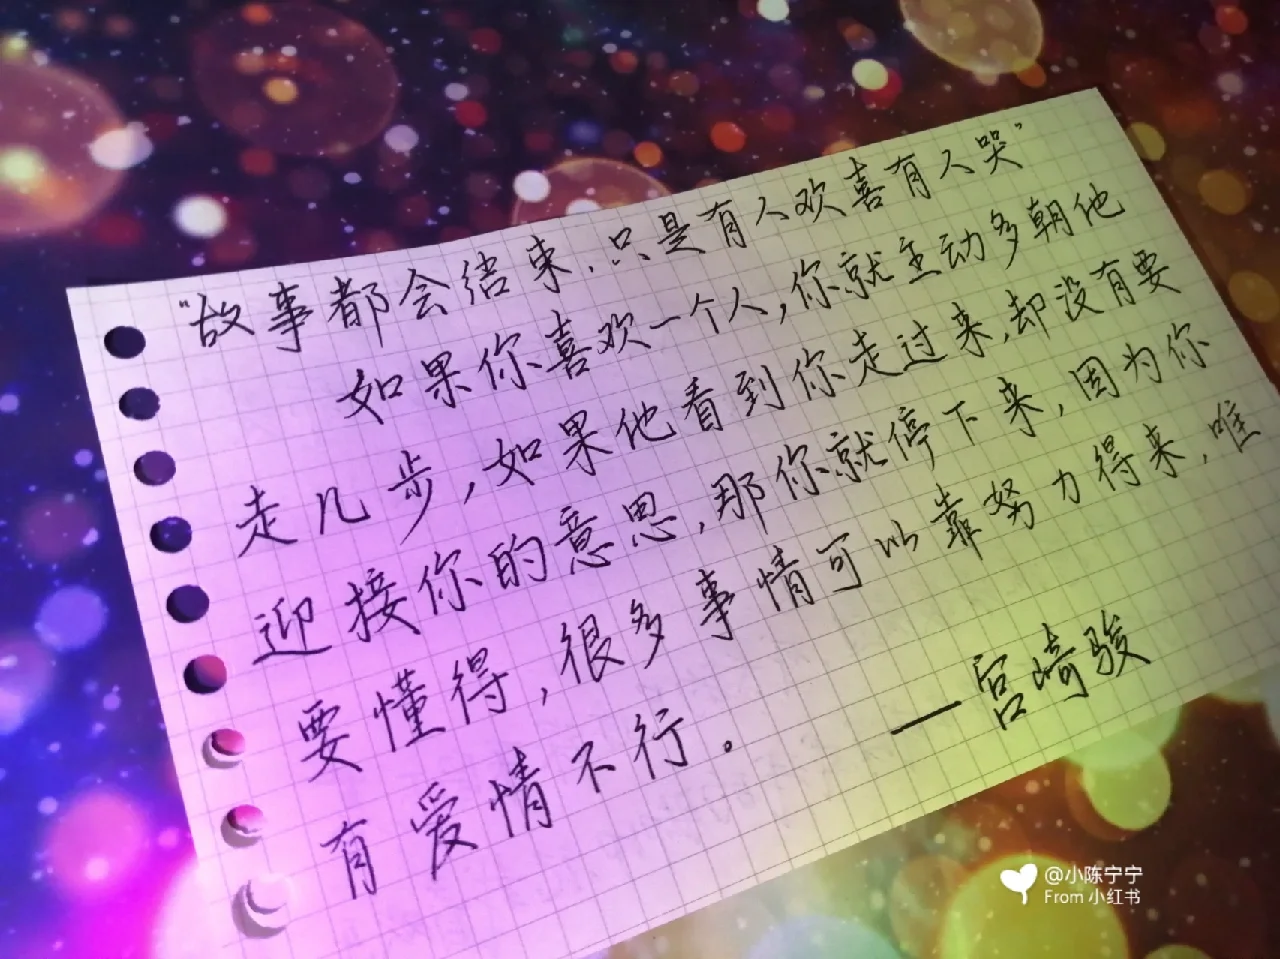 “故事都会结束,只是有人欢喜有人哭”
如果你喜欢一个人,你就主动多朝他
走几步,如果他看到你走过来,却没有要
迎接你的意思,那你就停下来,因为你
要懂得,很多事情可以靠努力得来,唯
有爱情不行。
——宫崎骏
@小陈宁宁
From 小红书